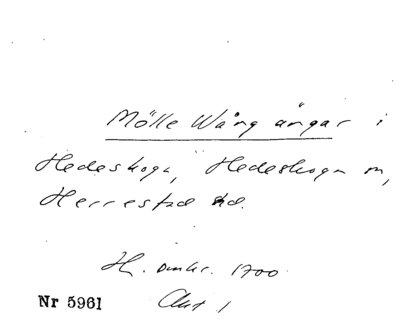 Mölle Wång ängar i
Hedeskoga, Hedeskoga sn,
Herrestad hd.
H. omkr. 1700
Nr 5961 Akt 1